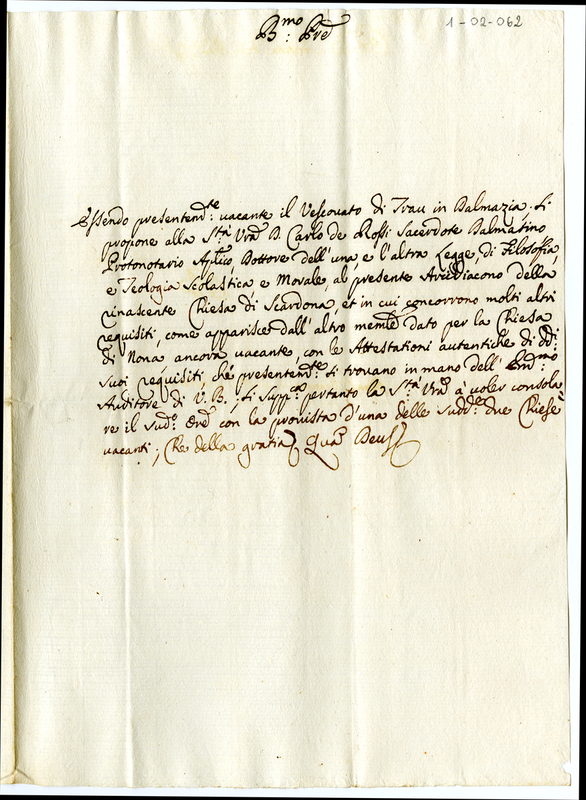 1-02-062
B:mo Pre
Essendo presentem:te uacante il Vescouato di Trau in Dalmazia, si
propone alla S:tà Vra D. Carlo de Rossi Sacerdote Dalmatino
Protonotario Aplico, Dottore dell'una, e l'altra Legge, di Filosofia,
e Teologia Scolastica, e Morale, al presente Arcidiacono della
rinascente Chiesa di Scardona, et in cui concorrono molti altri
requisiti, come apparisce dall'altro memle dato per la Chiesa
di Nona ancora uacante, con le Attestationi autentiche di dd:
suoi requisiti, che presentem:te si trouano in mano dell'Em:mo
Auditore di V. B., si supp:ca pertanto la S:tà Vra à uoler consola
re il sud:o Ore con la prouista d'una delle sudd:e due Chiese
uacanti; Che della gratia Qua Deus